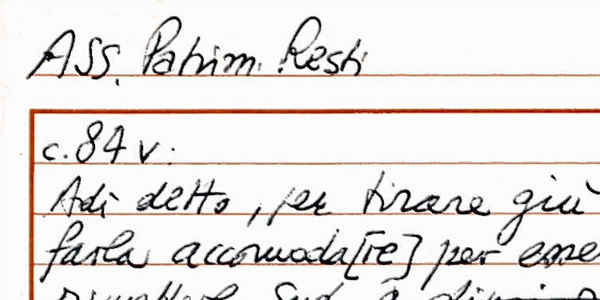 ASS. Patrim. Resti
c. 84 v.
Adì detto, per tirare giù
farla accomoda[re] per esse